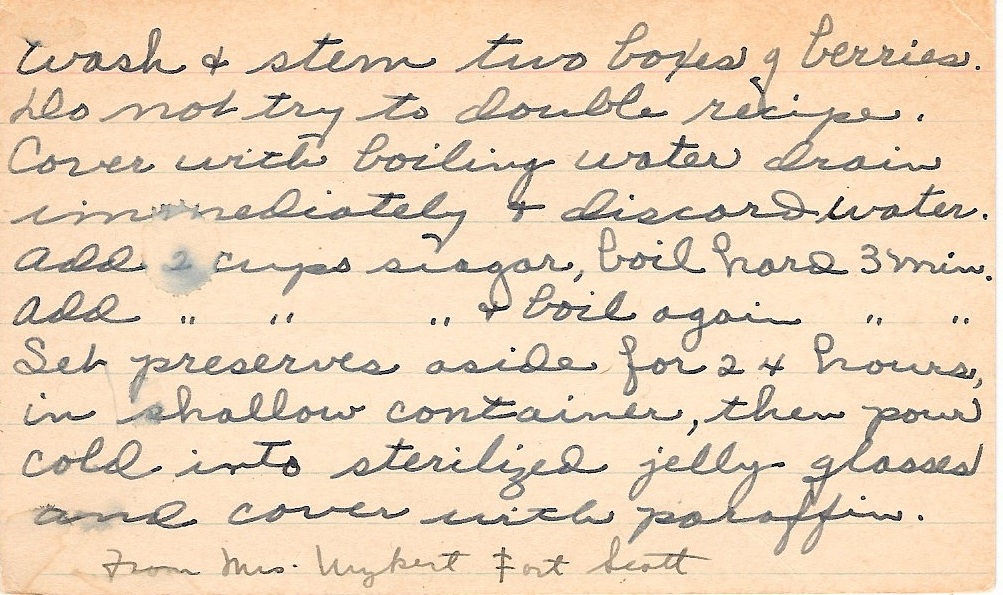 Wash & stem two boxes of berries.
Do not try to double recipe.
Cover with boiling water drain
immediately & discard water.
Add 2 cups sugar, boil hard 3 min.
Add " " " & boil again " "
Set preserves aside for 24 hours,
in shallow container, then pour
cold into sterilized jelly glasses
and cover with paraffin.
From Mrs. Wykert Fort Scott